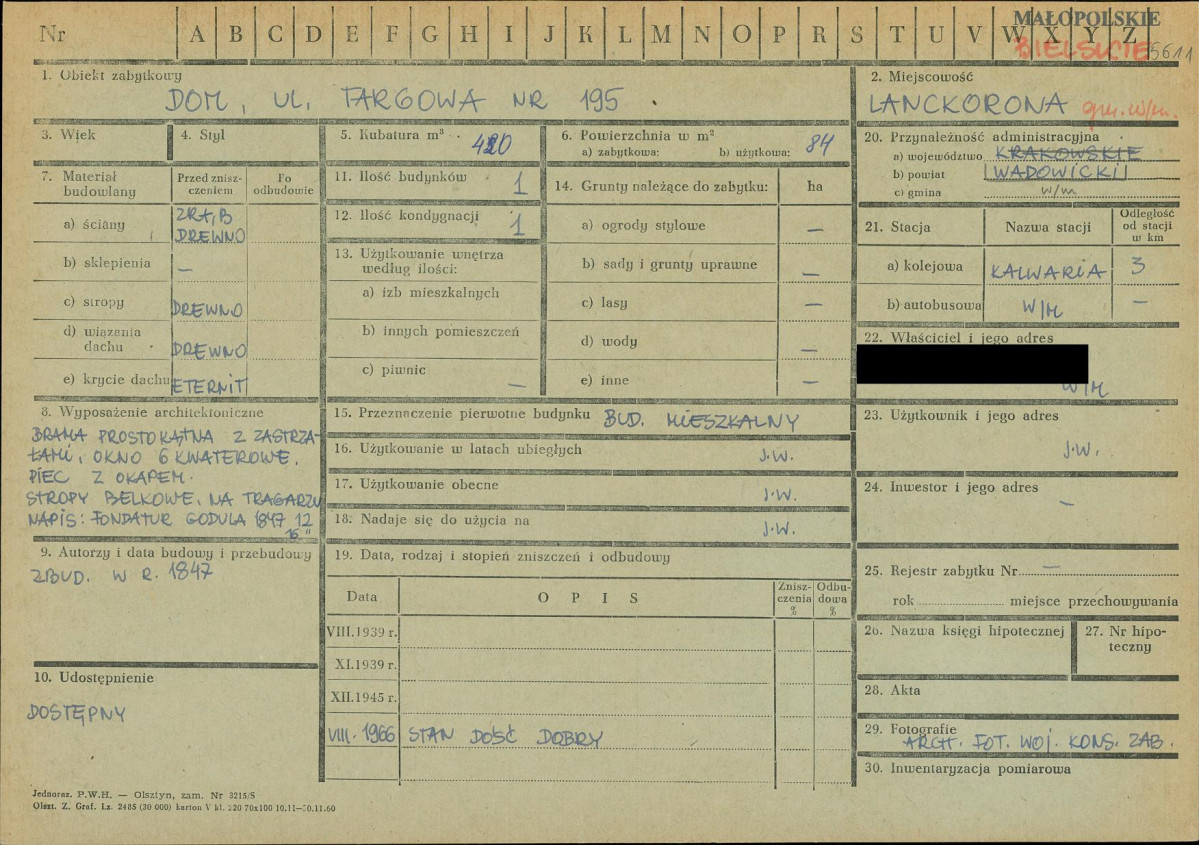 Nr A B C D E F G H I J K L M N O P R S T U V W X Y Z
MAŁOPOLSKIE
BIELSKIE 5611
1. Obiekt zabytkowy
DOM, UL. TARGOWA NR 195.
2. Miejscowość
LANCKORONA gm. w/m.
3. Wiek
4. Styl
5. Kubatura m³
420
6. Powierzchnia w m²
a) zabytkowa: b) użytkowa: 84
7. Materiał budowlany
Przed zniszczeniem
Po odbudowie
a) ściany
ZRĄB
DREWNO
b) sklepienia —
c) stropy DREWNO
d) wiązania
dachu DREWNO
e) krycie dachu ETERNIT
8. Wyposażenie architektoniczne
BRAMA PROSTOKĄTNA Z ZASTRZA-
ŁAMI, OKNO 6 KWATEROWE.
PIEC Z OKAPEM.
STROPY BELKOWE, NA TRAGARZU
NAPIS: FONDATUR GODULA 1847 12
9. Autorzy i data budowy i przebudowy
ZBUD. W R. 1847
10. Udostępnienie
DOSTĘPNY
11. Ilość budynków 1
12. Ilość kondygnacji 1
13. Użytkowanie wnętrza
według ilości:
a) izb mieszkalnych
b) innych pomieszczeń
c) piwnic —
14. Grunty należące do zabytku: ha
a) ogrody stylowe —
b) sady i grunty uprawne —
c) lasy —
d) wody —
e) inne —
15. Przeznaczenie pierwotne budynku BUD. MIESZKALNY
16. Użytkowanie w latach ubiegłych J.W.
17. Użytkowanie obecne J.W.
18. Nadaje się do użycia na J.W.
19. Data, rodzaj i stopień zniszczeń i odbudowy
Data OPIS Zniszczenia % Odbudowa %
VIII.1939 r.
XI.1939 r.
XII.1945 r.
VIII.1966 STAN DOŚĆ DOBRY
20. Przynależność administracyjna
a) województwo KRAKOWSKIE
b) powiat WADOWICKI
c) gmina w/m
21. Stacja Nazwa stacji Odległość od stacji w km
a) kolejowa KALWARIA 3
b) autobusowa W/M —
22. Właściciel i jego adres
W/M
23. Użytkownik i jego adres
J.W.
24. Inwestor i jego adres
—
25. Rejestr zabytku Nr —
rok miejsce przechowywania
26. Nazwa księgi hipotecznej
27. Nr hipo-
teczny
28. Akta
29. Fotografie
ARCH. FOT. WOJ. KONS. ZAB.
30. Inwentaryzacja pomiarowa
Jednoraz. P.W.H. — Olsztyn, zam. Nr 3215/S
Olszt. Z. Graf. Lz. 2485 (30 000) karton V kl. 220 70x100 10.11—30.11.60